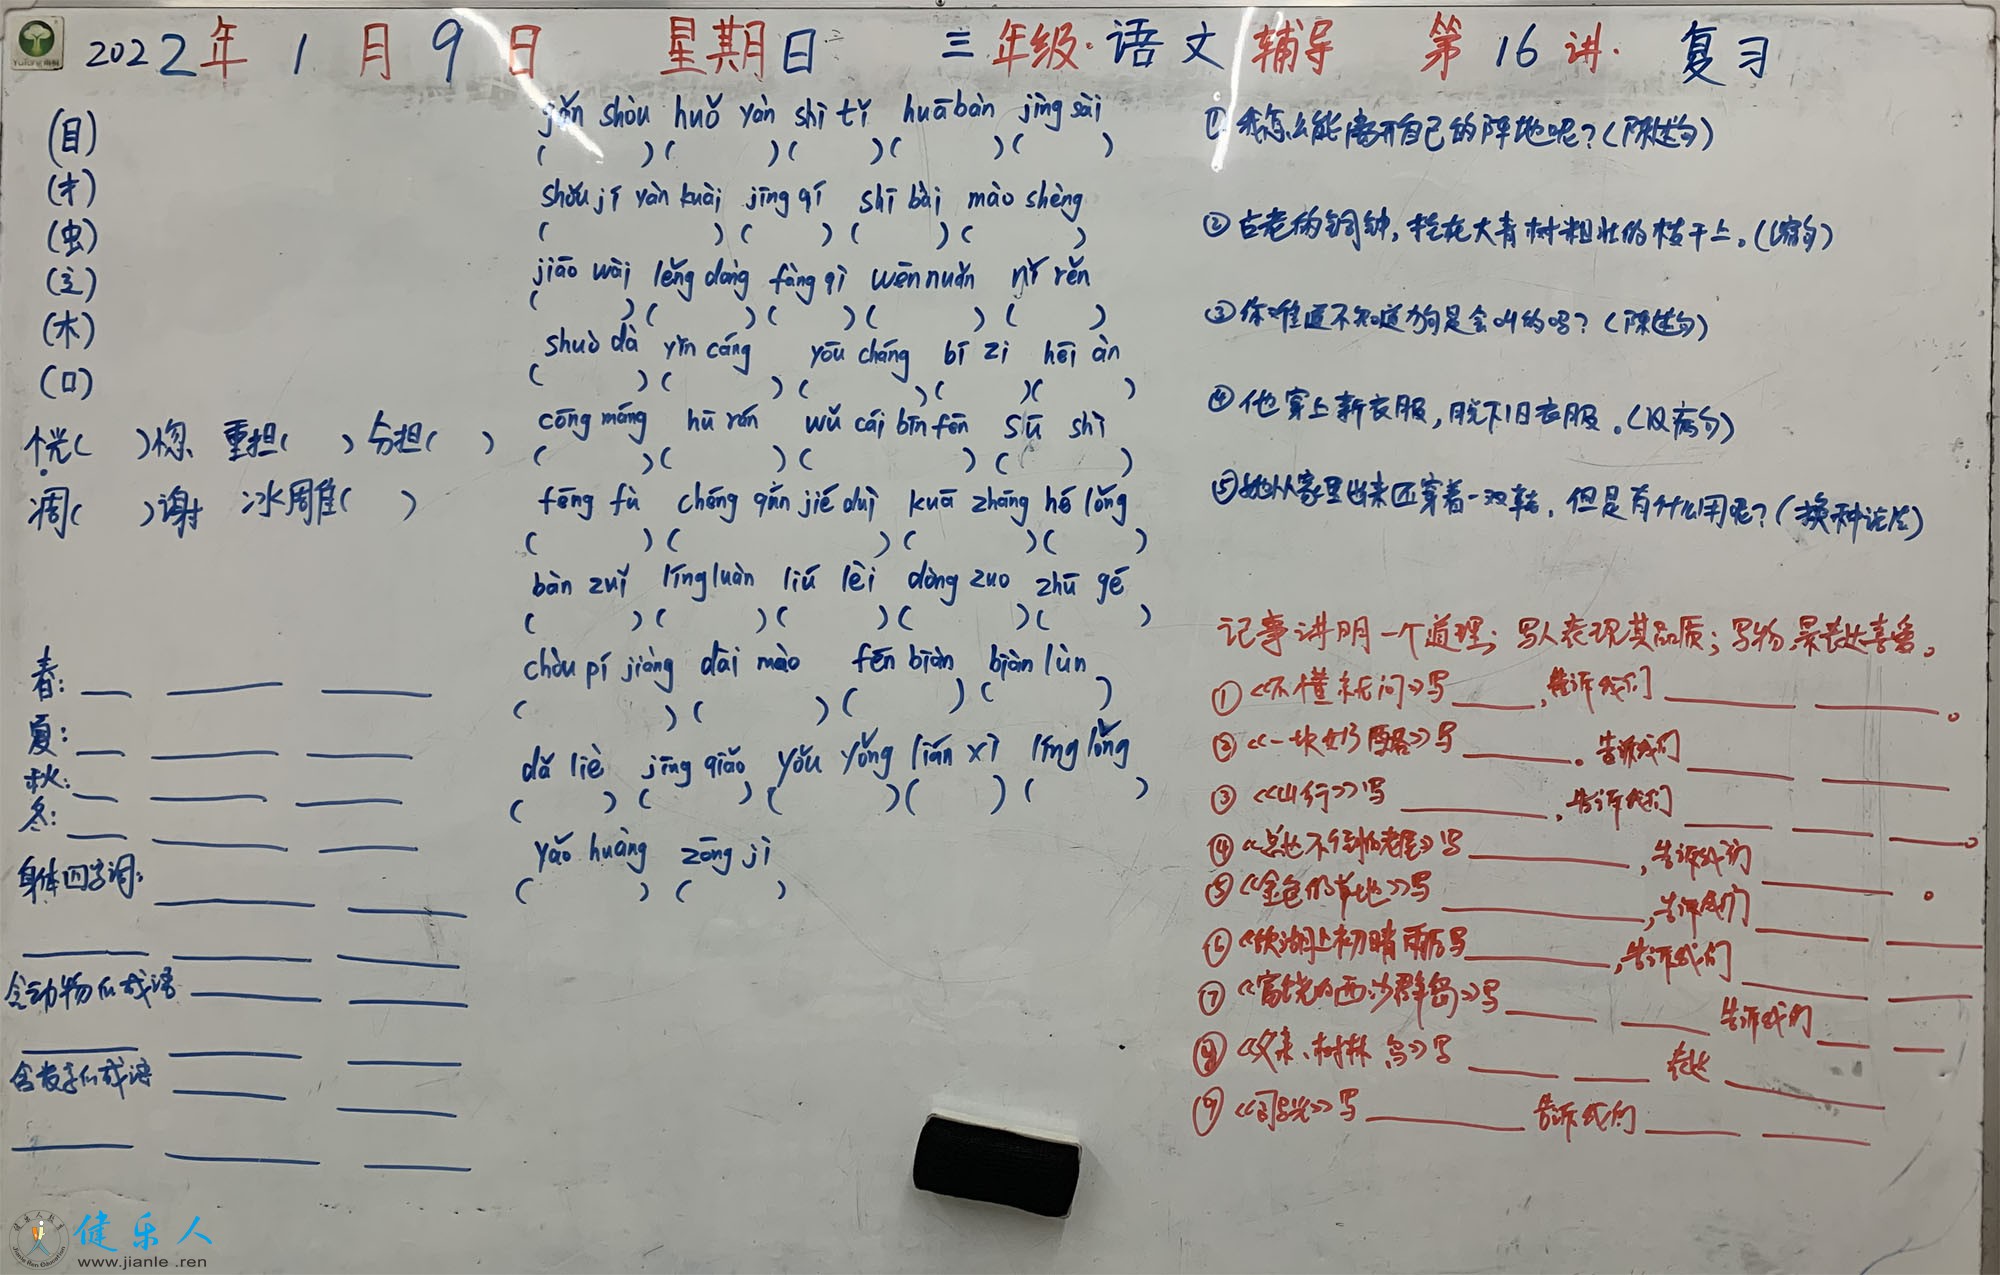 2022年1月9日 星期日 三年级·语文辅导 第16讲·复习
(目)
(才)
(虫)
(主)
(木)
(口)
恍( )惚 重担( ) 分担( )
凋( )谢 冰雕( )
春:
夏:
秋:
冬:
身体四字词:
含动物的成语
含数字的成语
gǎn shòu huǒ yàn shī tǐ huā bàn jìng sài
( ) ( ) ( ) ( ) ( )
shǒu jí yàn kuài jīng qí shī bài mào shèng
( ) ( ) ( ) ( )
jiāo wài lěng dàng fàng qì wēn nuǎn nǐ rěn
( ) ( ) ( ) ( ) ( )
shuò dà yǐn cáng yōu cháng bí zi hēi àn
( ) ( ) ( ) ( ) ( )
cōng máng hū rán wǔ cǎi bīn fēn sū shì
( ) ( ) ( ) ( )
fēng fù chéng qǔn jié duì kuā zhāng hé lǒng
( ) ( ) ( ) ( )
bàn zuǐ líng luàn liú lèi dòng zuo zhū gé
( ) ( ) ( ) ( ) ( )
chòu pí jiàng dài mào fēn biàn biàn lùn
( ) ( ) ( ) ( )
dǎ liè jīng qiǎo yǒu yǒng lián xì líng lǒng
( ) ( ) ( ) ( ) ( )
yáo huàng zōng jì
( ) ( )
①我怎么能离开自己的阵地呢?(陈述句)
②古老的铜钟,挂在大青树粗壮的枝干上。(缩句)
③你难道不知道狗是会叫的吗?(陈述句)
④他穿上新衣服,脱下旧衣服。(改病句)
⑤她从家里出来还穿着一双鞋,但是有什么用呢?(换种说法)
记事讲明一个道理;写人表现其品质;写物、景表达喜爱。
①《不懂就问》写 ,告诉我们 。
②《一块奶酪》写 。告诉我们
③《山行》写 ,告诉我们 。
④《总也倒不了的老屋》写 ,告诉我们 。
⑤《金色的草地》写 ,告诉我们
⑥《饮湖上初晴雨后》写 ,告诉我们
⑦《富饶的西沙群岛》写 告诉我们
⑧《父亲、树林、鸟》写 表达
⑨《司马光》写 告诉我们
健乐人
www.jianle.ren